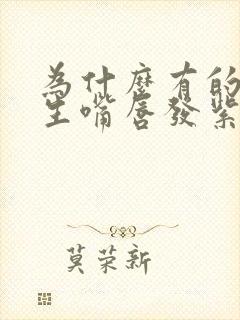 為什麼有的
生嘴唇發紫
莫荣新